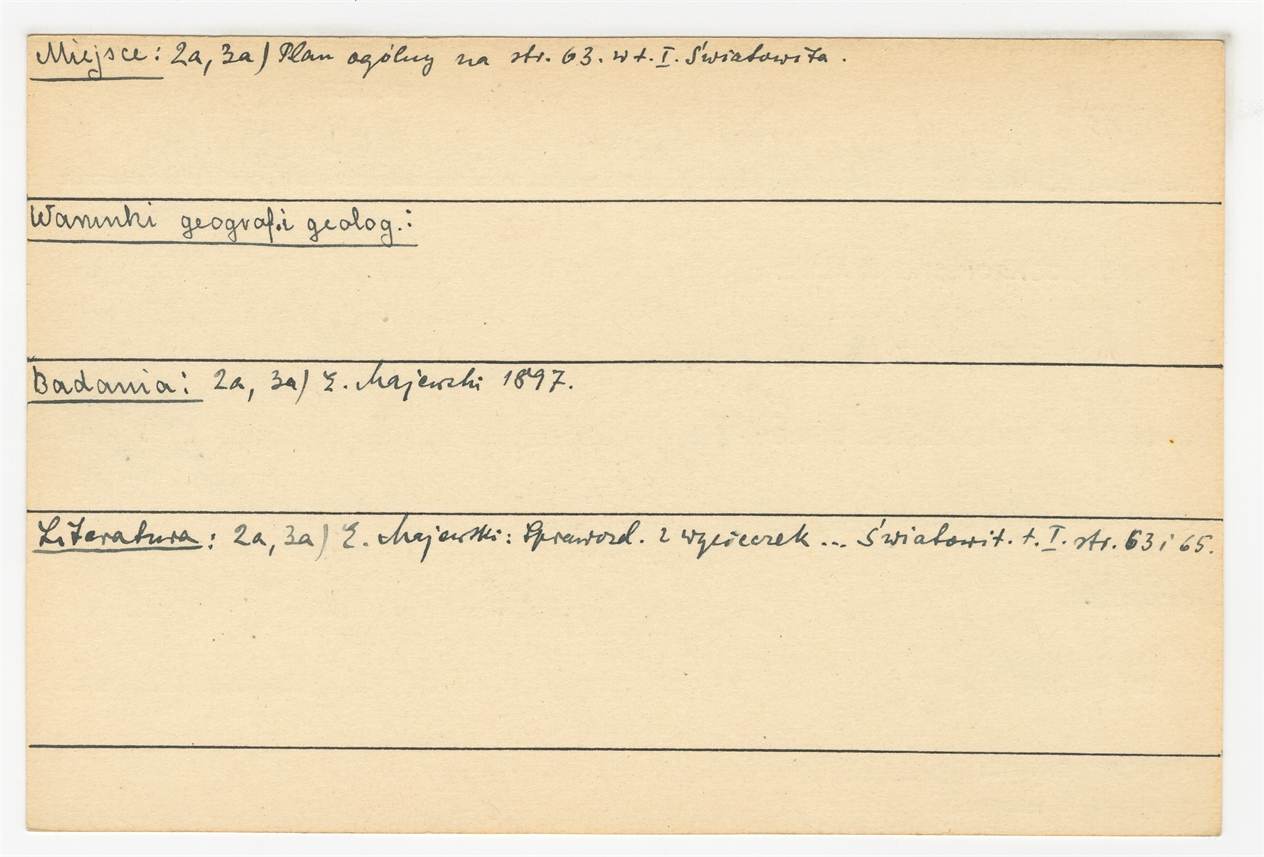 Miejsce: 2a, 3a) Plan ogólny na str. 63. w t. I. Światowita.
Warunki geograf.i geolog.:
Badania: 2a, 3a) E. Majewski 1897.
Literatura: 2a, 3a) E. Majewski: Sprawozd. z wycieczek ... Światowit. t. I. str. 63 i 65.